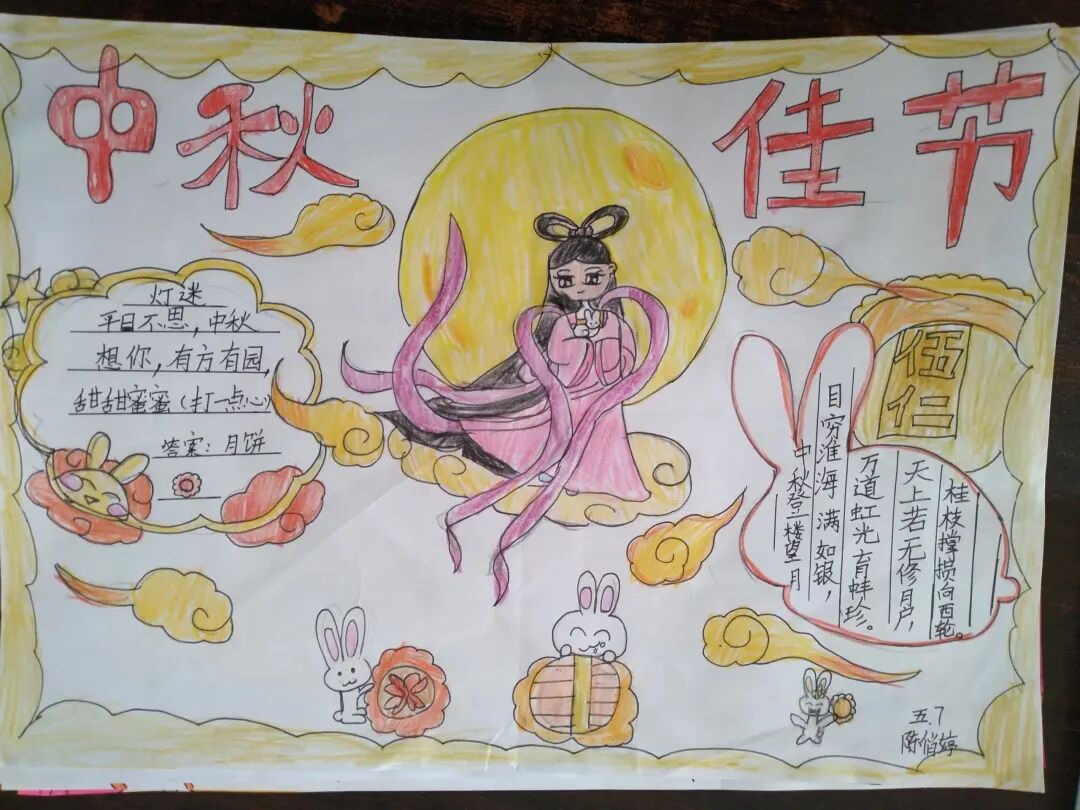 中秋 佳节
灯迷
平日不思,中秋
想你,有方有园,
甜甜蜜蜜(打一点心)
答案:月饼
伍仁
中秋登楼望月
目穷淮海满如银,
万道虹光育蚌珍。
天上若无修月户,
桂枝撑损向西轮。
五.7
陈俏婷